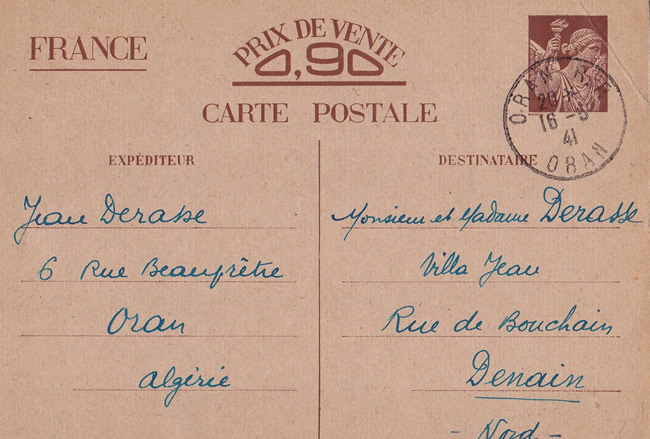 FRANCE
PRIX DE VENTE
0,90
CARTE POSTALE
ORAN
16 -
41
ORAN
EXPÉDITEUR
Jean Derasse
6 Rue Beauprêtre
Oran
Algérie
DESTINATAIRE
Monsieur et Madame Derasse
Villa Jean
Rue de Bouchain
Denain
- Nord -